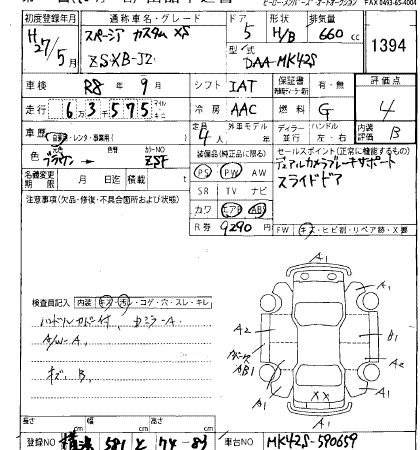 ヒーロー・メンバーズ・オートオークション FAX 0493-65-4004
初度登録年月 通称車名・グレード ドア 形状 排気量
H27/5月 スペーシア カスタム XS 5 H/B 660cc
ZSXB-J2 型式 DAA-MK42S 1394
車検 R8年9月 シフト IAT 保証書 有・無 評価点
走行 6万3千575 冷房 AAC 燃料 G 4
車歴 自家用・レンタ・事業用 定員 4人 外車モデル 年 ディーラー 並行 ハンドル 左・右 内装評価 B
色 ブラウン 色替 カラーNO ZSF 装備品(純正品に限る) セールスポイント(正常に機能するもの)
名義変更期限 月 日迄 積載 t PS PW AW デュアルカメラブレーキサポート
SR TV ナビ スライドドア
注意事項(欠品・修復・不具合箇所および状態) カワ エアB ABS
R券 9290円 FW キズ・ヒビ割・リペア跡・X要
検査員記入 内装 キズ・汚レ・コゲ・穴・スレ・キレ
ハンドルカバー付 カミラーA
A/W-A
キズ B
A1
A1
A2 B1
AB1 A2
A1 XX A1
A1
長さ cm 幅 cm 高さ cm
登録NO 581 と 74-83 車台NO MK42S-590659